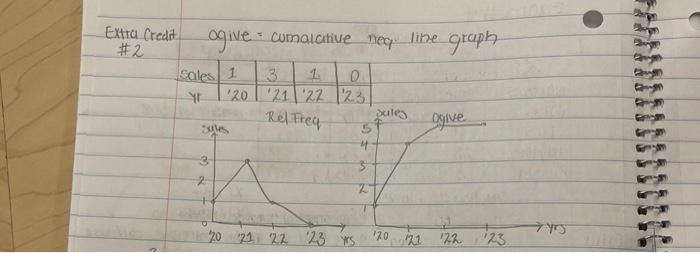 Extra Credit
#2
ogive = cumalative freq line graph
sales 1 3 1 0
yr '20 '21 '22 '23
Rel Freq
sales
3
2
1
0
'20 '21 '22 '23 yrs
sales
ogive
5
4
3
2
1
'20 '21 '22 '23 yrs